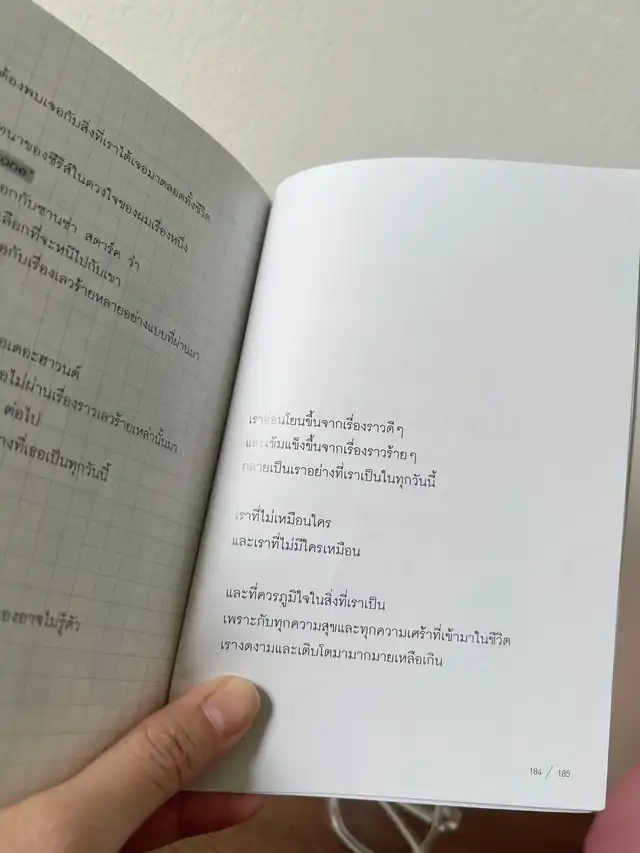 ต้องพบเจอกับสิ่งที่เราได้เจอมาตลอดทั้งชีวิต
ของซีรีส์ในดวงใจของผมเรื่องหนึ่ง
กับซานซ่า สตาร์ค ว่า
เลือกที่จะหนีไปกับเขา
กับเรื่องเลวร้ายหลายอย่างแบบที่ผ่านมา
เดอะฮาวนด์
ไม่ผ่านเรื่องราวเลวร้ายเหล่านั้นมา
ต่อไป
ที่เธอเป็นทุกวันนี้
อาจไม่รู้ตัว
เราอ่อนโยนขึ้นจากเรื่องราวดีๆ
และเข้มแข็งขึ้นจากเรื่องราวร้ายๆ
กลายเป็นเราอย่างที่เราเป็นในทุกวันนี้
เราที่ไม่เหมือนใคร
และเราที่ไม่มีใครเหมือน
และที่ควรภูมิใจในสิ่งที่เราเป็น
เพราะกับทุกความสุขและทุกความเศร้าที่เข้ามาในชีวิต
เรางดงามและเติบโตมามากมายเหลือเกิน
184 / 185